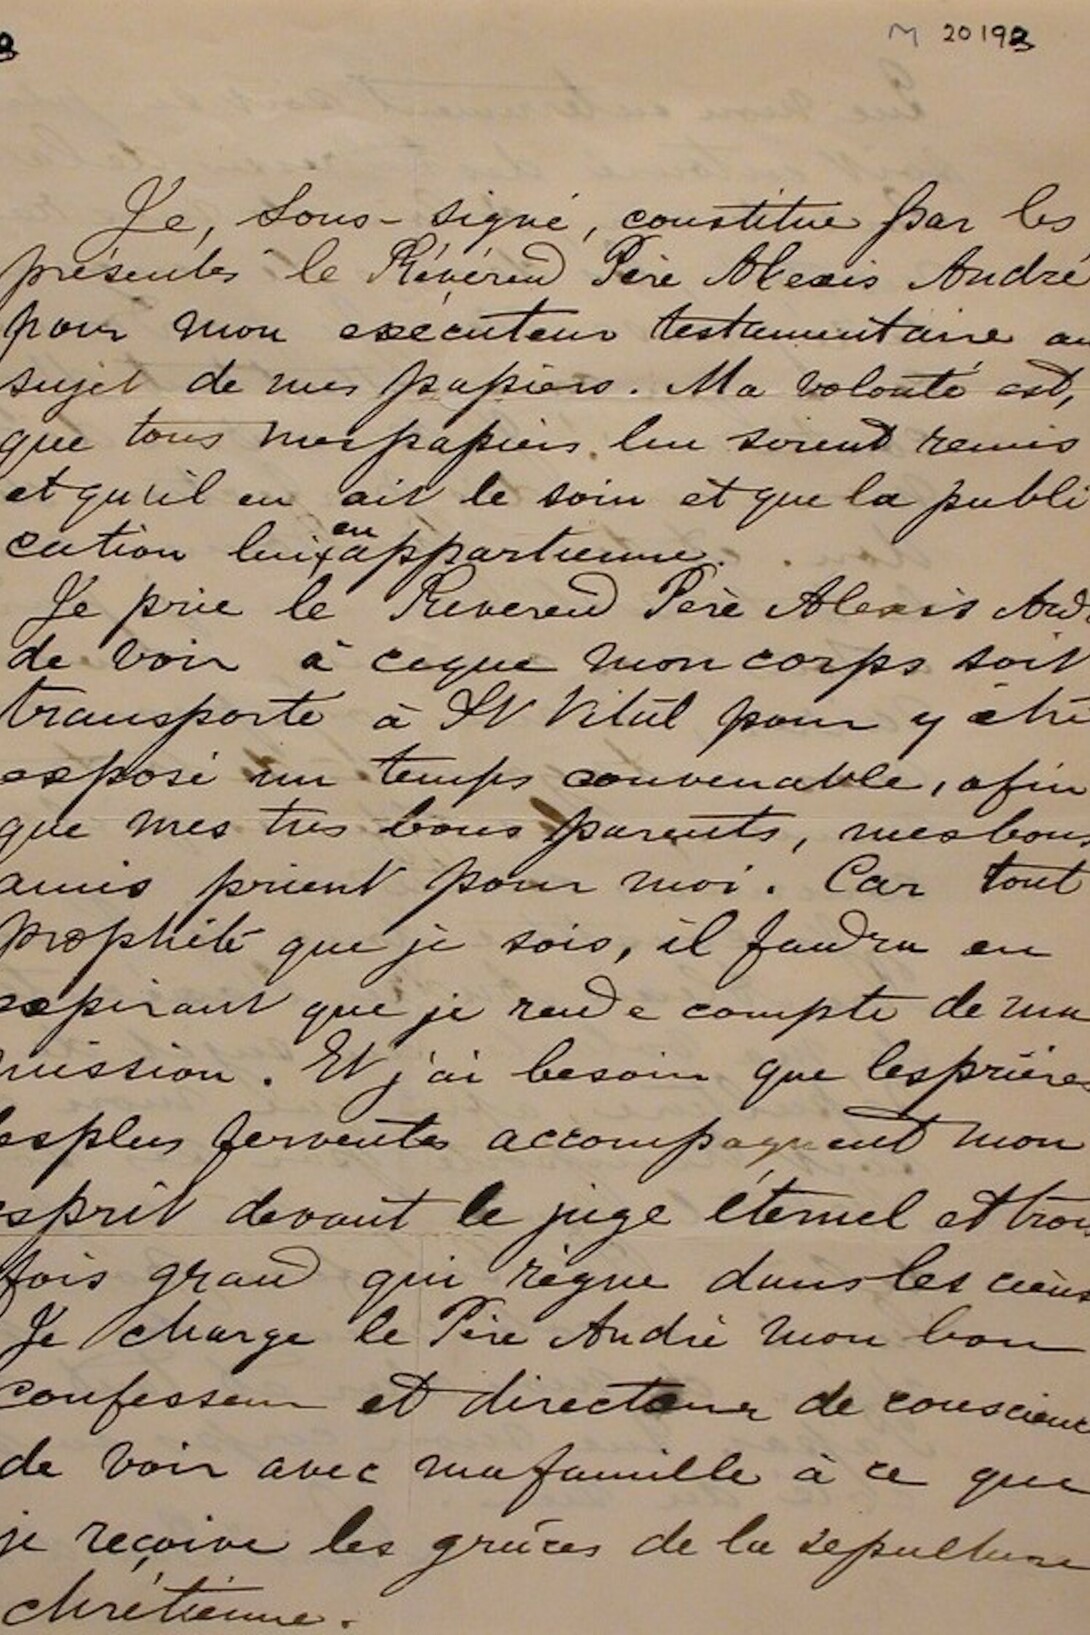 M 20192
Je, Sous-signé, constitue par les
présentes le Révérend Père Alexis André
pour mon exécuteur testamentaire au
sujet de mes papiers. Ma volonté est,
que tous mes papiers lui soient remis
et qu'il en ait le soin et que la publi
cation lui en appartienne.
Je prie le Révérend Père Alexis And
de voir à ce que mon corps soit
transporté à St Vital pour y être
exposé un temps convenable, afin
que mes très bons parents, mes bons
amis prient pour moi. Car tout
prophète que je sois, il faudra en
expirant que je rende compte de ma
mission. Et j'ai besoin que les prières
les plus ferventes accompagnent mon
esprit devant le juge éternel et trois
fois grand qui règne dans les cieux
Je charge le Père André mon bon
confesseur et directeur de conscience
de voir avec ma famille à ce que
je reçoive les grâces de la sépulture
chrétienne.